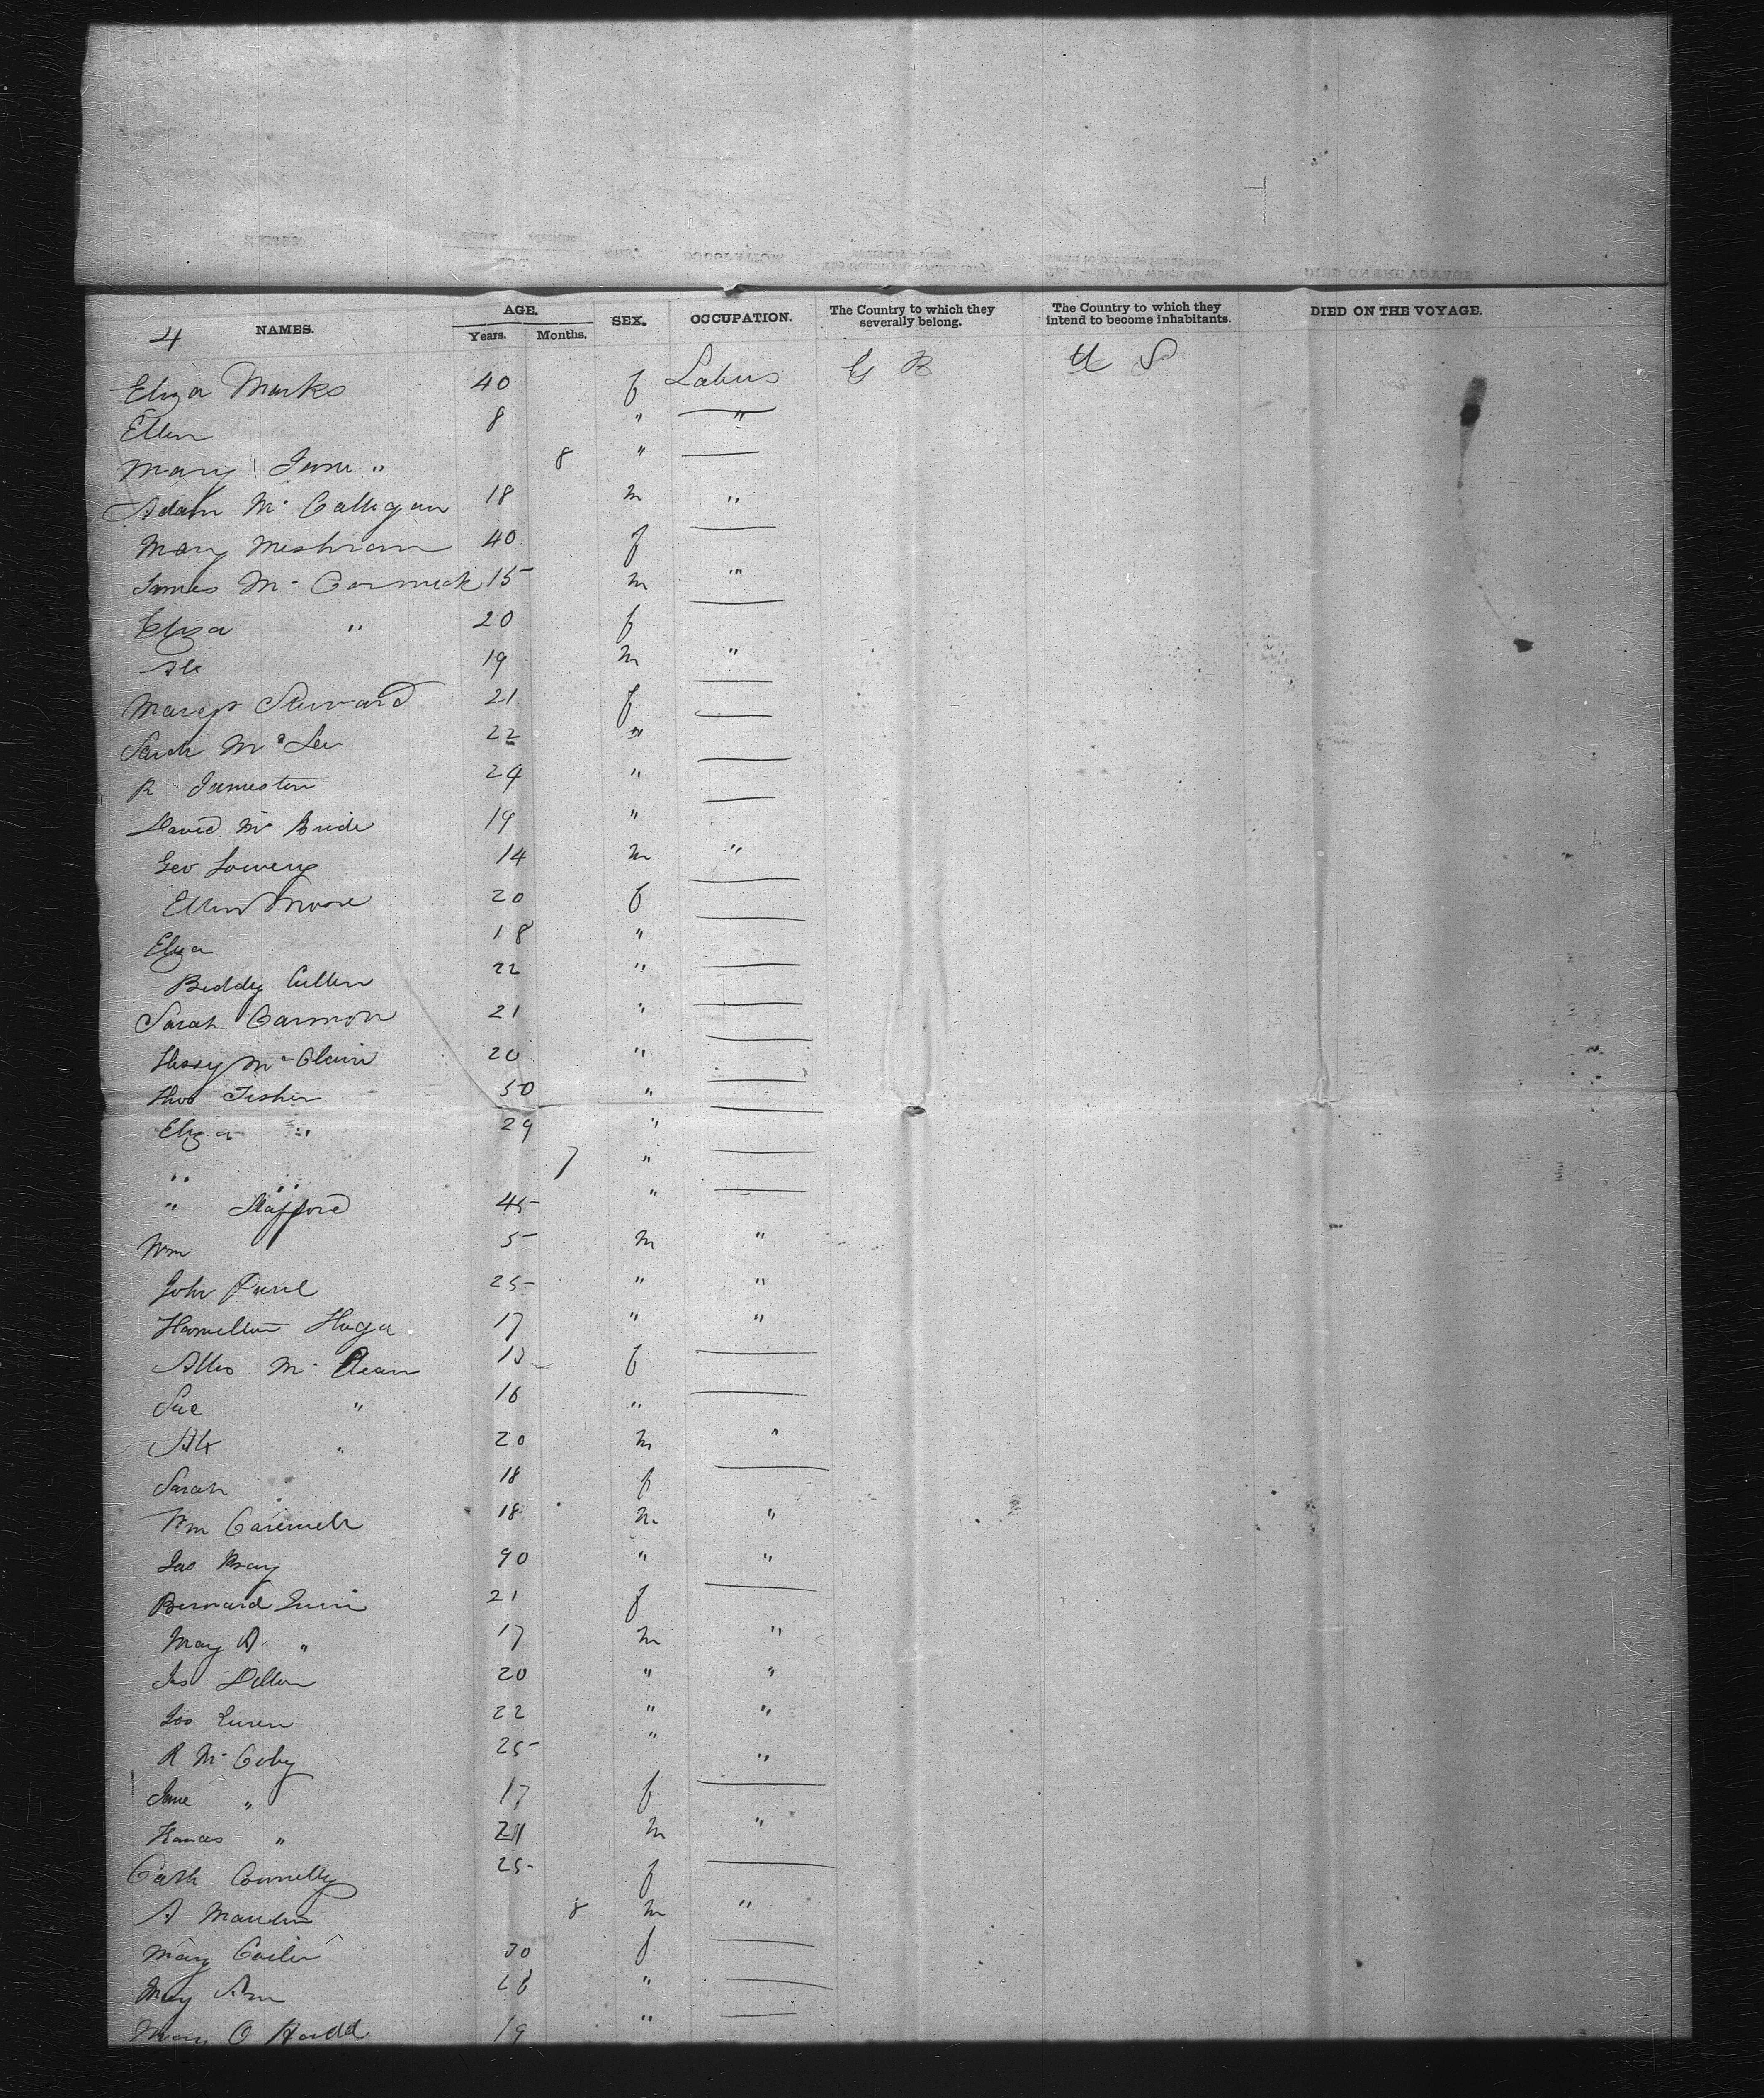 4 NAMES. AGE. Years. Months. SEX. OCCUPATION. The Country to which they severally belong. The Country to which they intend to become inhabitants. DIED ON THE VOYAGE.
Eliza Marks 40 f G B U S
Ellen 8 " "
Mary Jane " 8 " —
Adam Mc Calligan 18 m "
Mary 40 f —
James Mc Cormick 15 m "
Eliza " 20 f —
Alx 19 m "
Margt Steward 21 f —
Sarah Mc 22 " —
R Jameston 24 " —
David Mc Bride 19 " —
Geo Lowery 14 m "
Ellen Moore 20 f —
Eliza 18 " —
Biddy Cullen 22 " —
Sarah Garmon 21 " —
Hessy Mc Clain 20 " —
Thos Fisher 50 " —
Eliza " 29 " —
" " 7 " —
" Stafford 45 " —
Wm 5 m "
John Paul 25 " "
Hamilton 17 " "
Mc Clean f —
Sue " 16 " —
Alx " 20 m "
Sarah " 18 f —
Wm 18 m "
Jas Bray 90 " "
Bernard Quin 21 f —
Mary A " 17 m "
Jas Dillon 20 " "
Jas 22 " "
R Mc Coby 25 " "
Jane " 17 f —
" 21 m "
Cath Connelly 25 f —
A 8 m "
Mary 30 f —
May Ann 28 " —
Mary O 19 " —